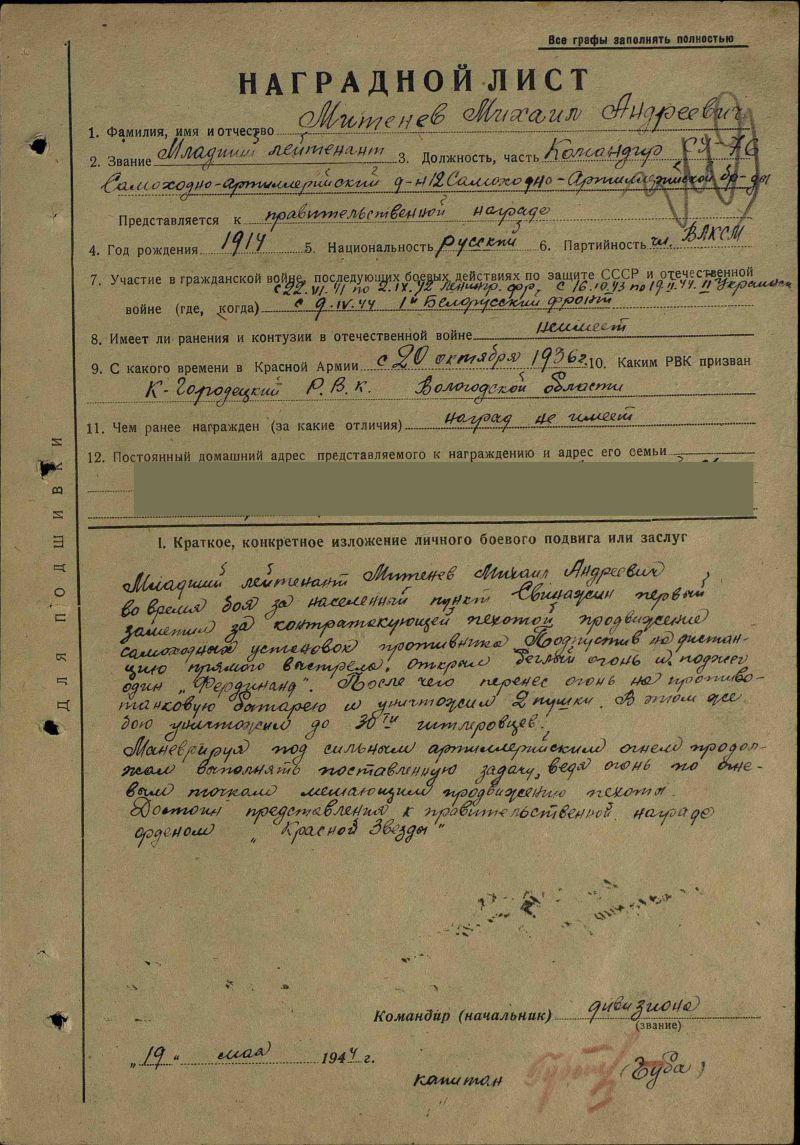 Все графы заполнять полностью
НАГРАДНОЙ ЛИСТ
1. Фамилия, имя и отчество Митенев Михаил Андреевич
2. Звание Младший лейтенант 3. Должность, часть Командир СУ-76
Самоходно-артиллерийский д-н 12 Самоходно-Артиллерийской бр-ды
Представляется к правительственной награде
4. Год рождения 1917 5. Национальность Русский 6. Партийность чл. ВЛКСМ
7. Участие в гражданской войне, последующих боевых действиях по защите СССР и отечественной
с 22.VI.41 по 2.IX.42 Ленингр. фр. с 16.10.43 по 19.II.44. II Украинск
войне (где, когда) с 9.IV.44 1й Белорусский фронт
8. Имеет ли ранения и контузии в отечественной войне неимеет
9. С какого времени в Красной Армии с 20 октября 1936г. 10. Каким РВК призван
К-Городецкий Р.В.К. Вологодской области
11. Чем ранее награжден (за какие отличия) наград не имеет
12. Постоянный домашний адрес представляемого к награждению и адрес его семьи
I. Краткое, конкретное изложение личного боевого подвига или заслуг
Младший лейтенант Митенев Михаил Андреевич,
во время боя за населенный пункт первый
заметил за контратакующей пехотой продвижение
самоходных установок противника. Подпустив на дистан-
цию прямого выстрела, открыл беглый огонь и поджег
один "Фердинанд". После чего перенес огонь на противо-
танковую батарею и уничтожил 2 пушки. В этом же
бою уничтожил до 30ти гитлеровцев.
Маневрируя под сильным артиллерийским огнем продол-
жал выполнять поставленную задачу, ведя огонь по огне-
вым точкам мешающим продвижению пехоты.
Достоин представления к правительственной награде
орденом "Красной Звезды"
Командир (начальник) дивизиона
(звание)
"19" мая 1944 г.
капитан (Губа)
ДЛЯ ПОДШИВКИ